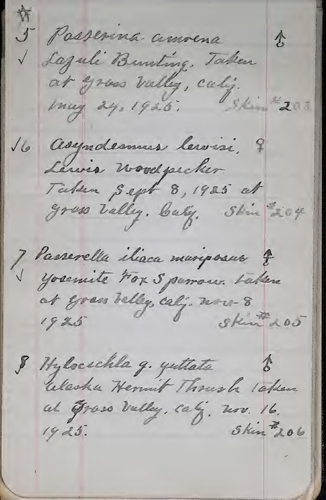 #
5 Passerina amoena ♂
✓ Lazuli Bunting. Taken
at Grass Valley, Calif.
May 24, 1925. Skin #203
✓6 Asyndesmus lewisi. ♀
Lewis Woodpecker
Taken Sept 8, 1925 at
Grass Valley. Calif. Skin #204
7 Passerella iliaca mariposae ♂
✓ Yosemite Fox Sparrow taken
at Grass Valley, Calif. Nov-8
1925 Skin #205
8 Hylocichla g. guttata ♂
Alaska Hermit Thrush taken
at Grass Valley, Calif. Nov. 16,
1925. Skin #206